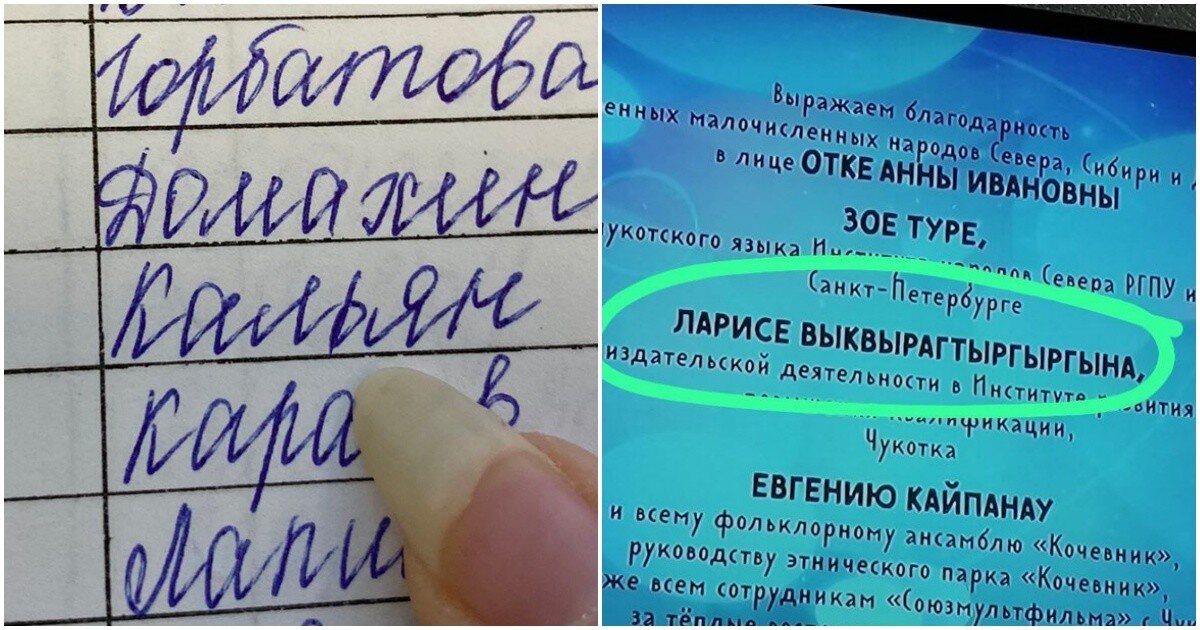 Горбатова
Домахин
Кальян
Выражаем благодарность
енных малочисленных народов Севера, Сибири и
в лице ОТКЕ АННЫ ИВАНОВНЫ
ЗОЕ ТУРЕ,
чукотского языка Института народов Севера РГПУ и
Санкт-Петербурге
ЛАРИСЕ ВЫКВЫРАГТЫРГЫРГЫНА,
издательской деятельности в Институте развития
квалификации,
Чукотка
ЕВГЕНИЮ КАЙПАНАУ
и всему фольклорному ансамблю «Кочевник»,
руководству этнического парка «Кочевник»,
же всем сотрудникам «Союзмультфильма» с
за тёплые